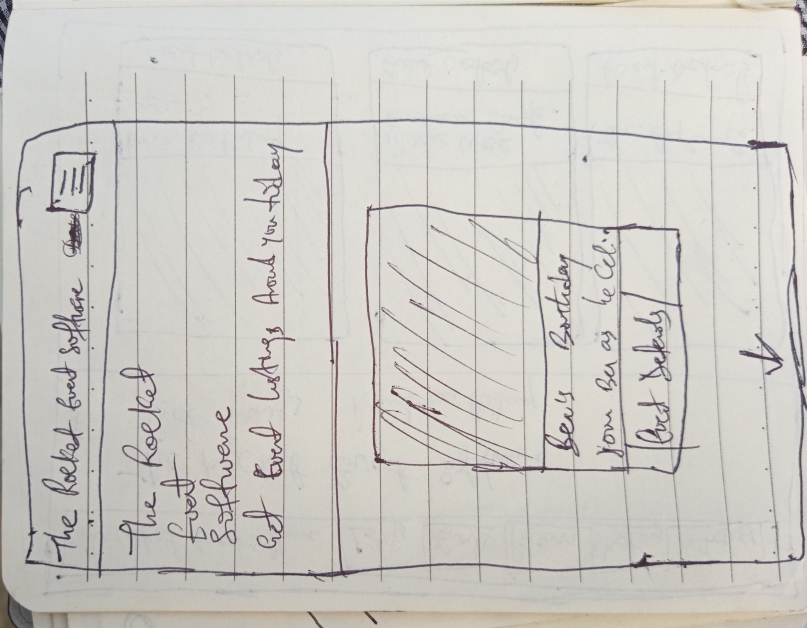 The Rocket Event Software
The Rocket
Event
Software
Get Event Listings Around you today
Ben's Birthday
Join Ben as he Cel..
Event Details